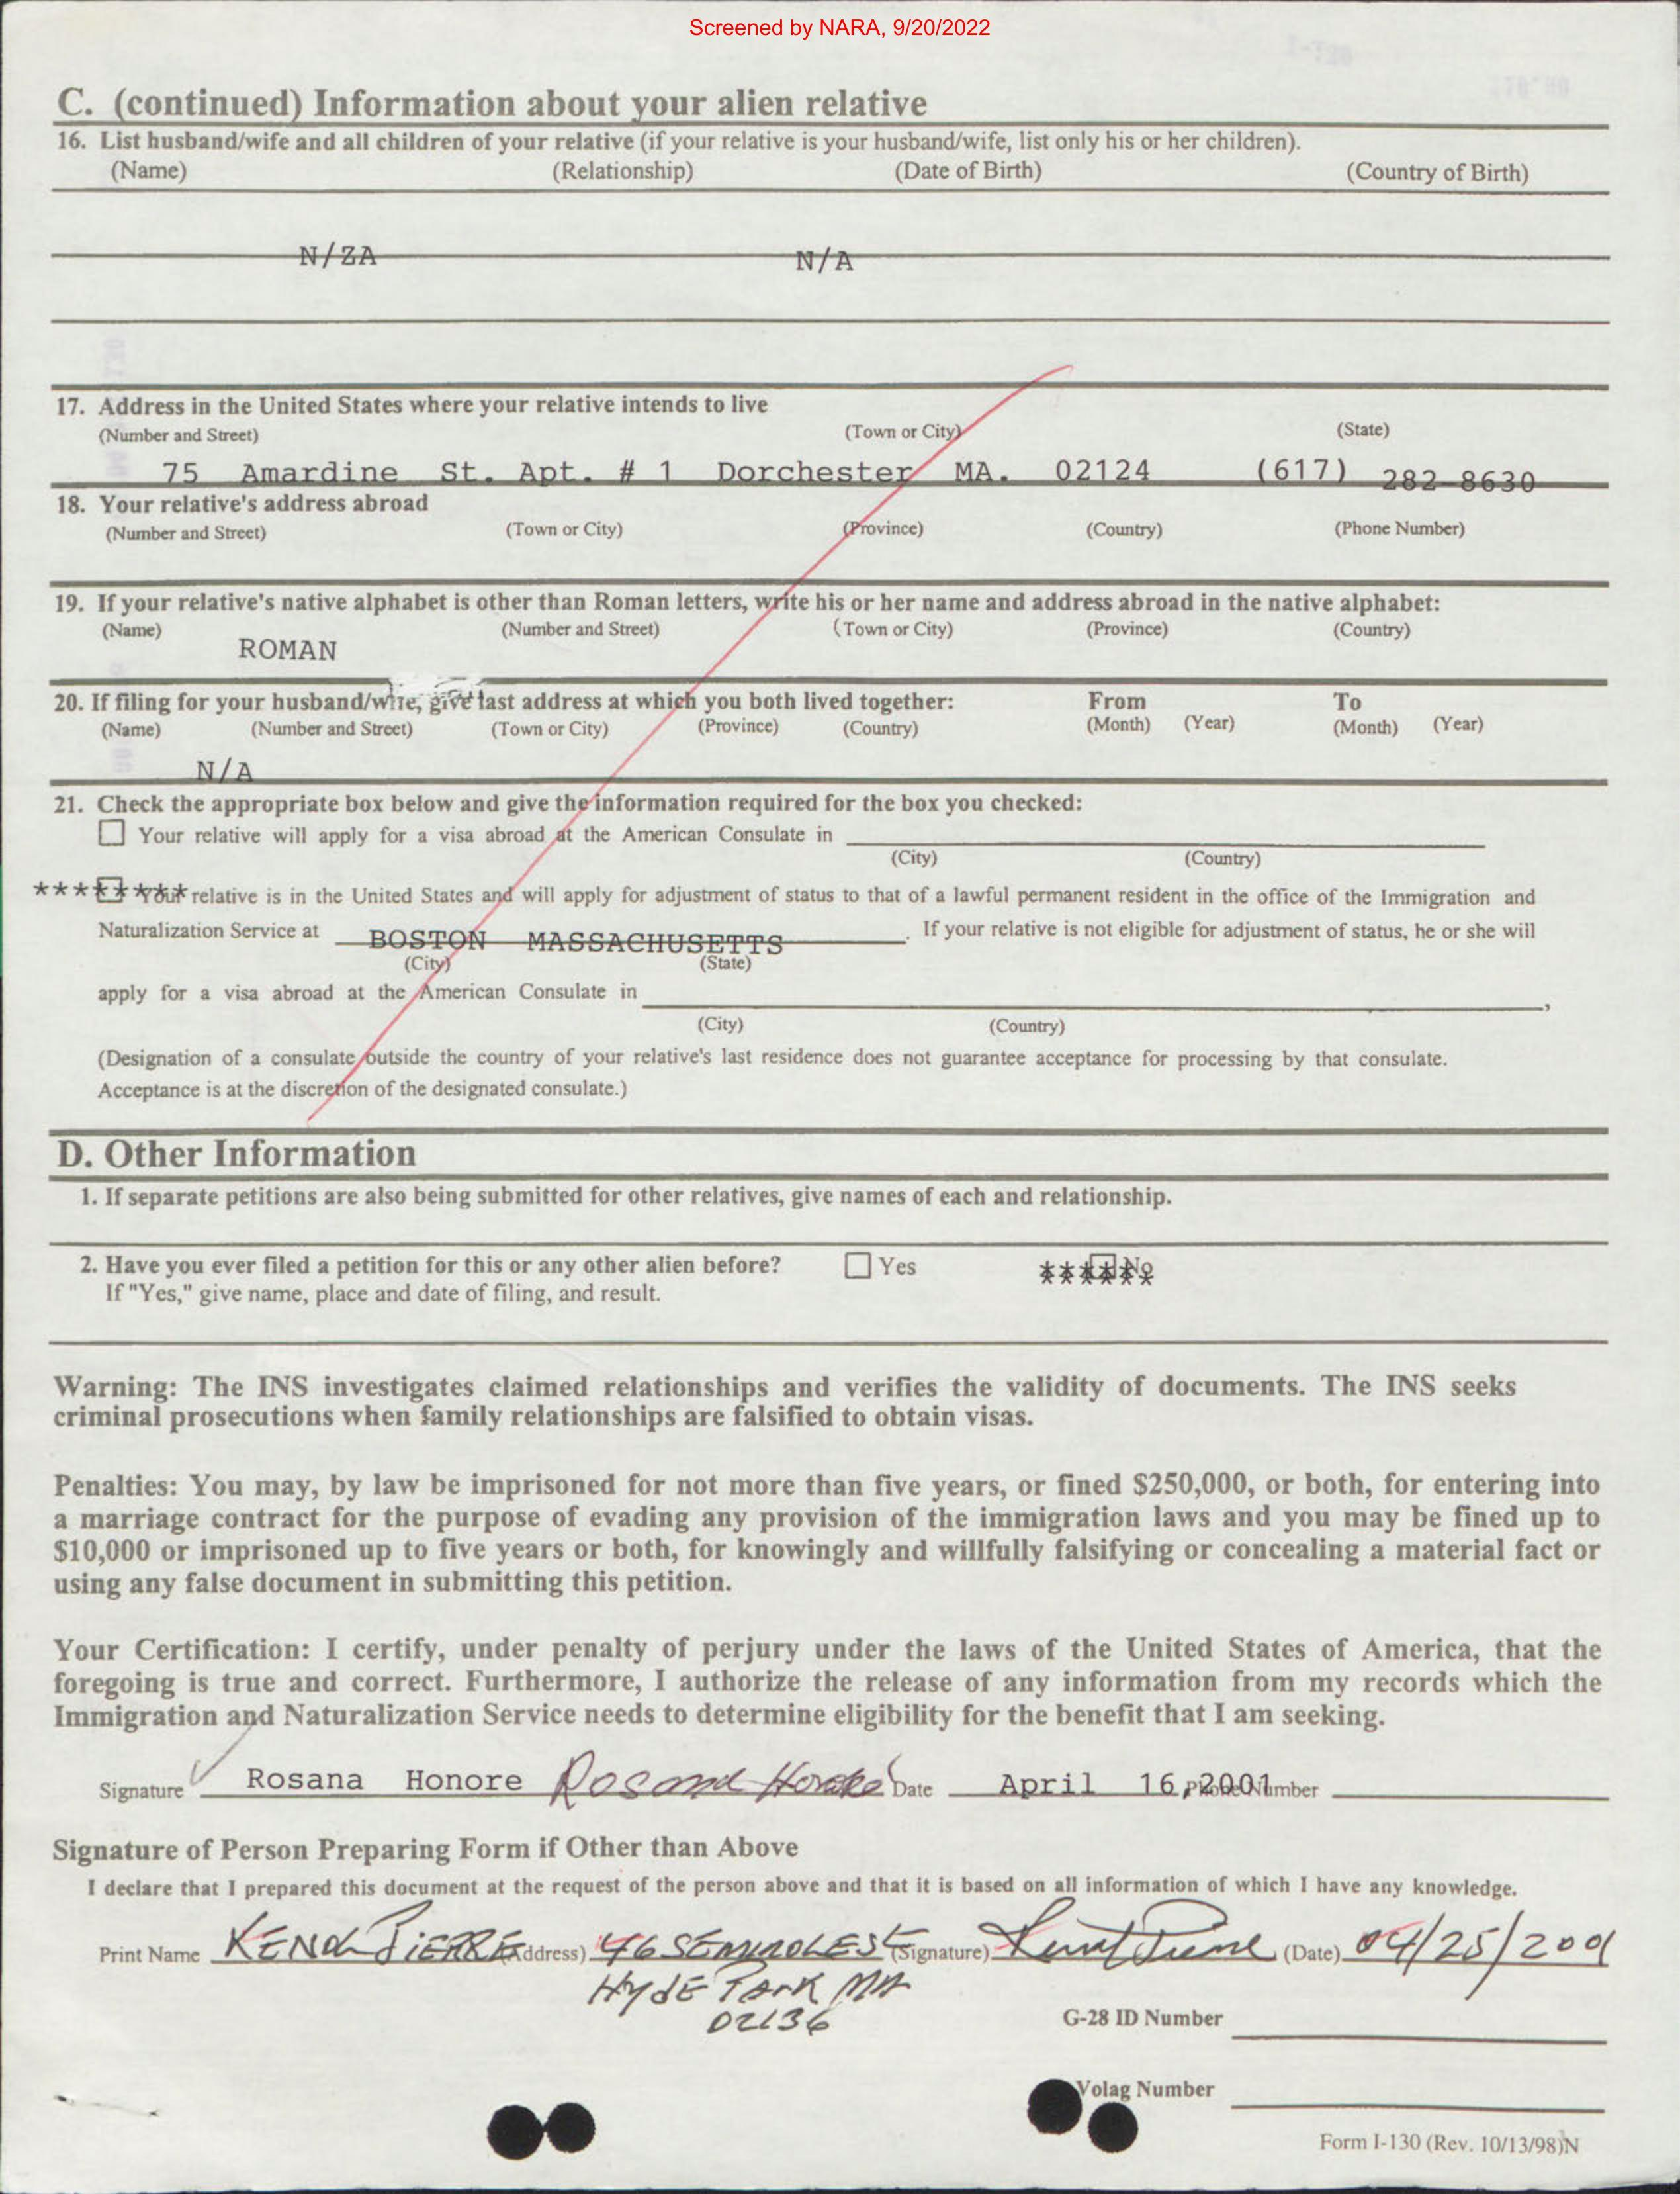 Screened by NARA, 9/20/2022
C. (continued) Information about your alien relative
16. List husband/wife and all children of your relative (if your relative is your husband/wife, list only his or her children).
(Name) (Relationship) (Date of Birth) (Country of Birth)
N/ZA N/A
17. Address in the United States where your relative intends to live
(Number and Street) (Town or City) (State)
75 Amardine St. Apt. # 1 Dorchester MA. 02124 (617) 282-8630
18. Your relative's address abroad
(Number and Street) (Town or City) (Province) (Country) (Phone Number)
19. If your relative's native alphabet is other than Roman letters, write his or her name and address abroad in the native alphabet:
(Name) (Number and Street) (Town or City) (Province) (Country)
ROMAN
20. If filing for your husband/wife, give last address at which you both lived together: From To
(Name) (Number and Street) (Town or City) (Province) (Country) (Month) (Year) (Month) (Year)
N/A
21. Check the appropriate box below and give the information required for the box you checked:
Your relative will apply for a visa abroad at the American Consulate in
(City) (Country)
******** Your relative is in the United States and will apply for adjustment of status to that of a lawful permanent resident in the office of the Immigration and
Naturalization Service at BOSTON MASSACHUSETTS . If your relative is not eligible for adjustment of status, he or she will
(City) (State)
apply for a visa abroad at the American Consulate in ,
(City) (Country)
(Designation of a consulate outside the country of your relative's last residence does not guarantee acceptance for processing by that consulate.
Acceptance is at the discretion of the designated consulate.)
D. Other Information
1. If separate petitions are also being submitted for other relatives, give names of each and relationship.
2. Have you ever filed a petition for this or any other alien before? Yes ****** No
If "Yes," give name, place and date of filing, and result.
Warning: The INS investigates claimed relationships and verifies the validity of documents. The INS seeks
criminal prosecutions when family relationships are falsified to obtain visas.
Penalties: You may, by law be imprisoned for not more than five years, or fined $250,000, or both, for entering into
a marriage contract for the purpose of evading any provision of the immigration laws and you may be fined up to
$10,000 or imprisoned up to five years or both, for knowingly and willfully falsifying or concealing a material fact or
using any false document in submitting this petition.
Your Certification: I certify, under penalty of perjury under the laws of the United States of America, that the
foregoing is true and correct. Furthermore, I authorize the release of any information from my records which the
Immigration and Naturalization Service needs to determine eligibility for the benefit that I am seeking.
Signature Rosana Honore Rosana Honoré Date April 16, 2001 Phone Number
Signature of Person Preparing Form if Other than Above
I declare that I prepared this document at the request of the person above and that it is based on all information of which I have any knowledge.
Print Name PIERRE (Address) 46 SEMINOLE ST (Signature) (Date) 04/25/2001
HYDE PARK MA
02136
G-28 ID Number
Volag Number
Form I-130 (Rev. 10/13/98)N